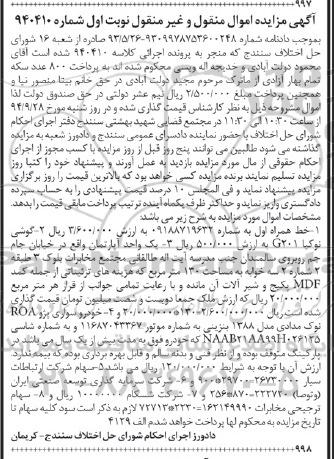 ۹۹۷
آگهی مزایده اموال منقول و غیر منقول نوبت اول شماره ۹۴۰۴۱۰
بموجب دادنامه شماره ۹۳۰۹۹۷۸۷۵۳۶۰۰۲۴۸-۹۳/۵/۲۶ صادره از شعبه ۱۶ شورای
حل اختلاف سنندج که منجر به پرونده اجرائی کلاسه ۹۴۰۴۱۰ شده است آقای
محمود دولت آبادی و خدیجه اله ویسی محکوم شده اند به پرداخت ۸۰۰ عدد سکه
تمام بهار آزادی از ماترک مرحوم مجید دولت آبادی در حق خانم بیتا منصور نیا و
همچنین پرداخت مبلغ ۲/۵۰۰/۰۰۰ ریال نیم عشر دولتی در حق صندوق دولت لذا
اموال مشروحه ذیل به نظر کارشناس قیمت گذاری شده و در روز شنبه مورخ ۹۴/۹/۲۸
از ساعت ۱۰:۳۰ الی ۱۱:۳۰ در مجتمع فضلی شهید بهشتی سنندج دفتر اجرای احکام
شورای حل اختلاف با حضور نماینده دادسرای عمومی سنندج و دادورز شعبه به مزایده
گذاشته می شود طالبین می توانند پنج روز قبل از روز مزایده با کسب مجوز از اجرای
احکام حقوقی از مال مورد مزایده بازدید به عمل آورند و پیشنهاد خود را کتبا روز
مزایده تسلیم نمایند برنده مزایده کسی خواهد بود که بالاترین قیمت را روز برگزاری
مزایده پیشنهاد نماید و فی المجلس ۱۰ درصد قیمت پیشنهادی را به حساب سپرده
دادگستری واریز نماید و حداکثر ظرف یکماه آینده ترتیب پرداخت مابقی قیمت را بدهد
مشخصات اموال مورد مزایده به شرح زیر می باشد:
۱-خط همراه اول به شماره ۰۹۱۸۸۷۱۹۶۳۲ به ارزش ۳/۶۰۰/۰۰۰ ریال ۲-گوشی
نوکیا G۲۰۱ به ارزش ۵۰۰/۰۰۰ ریال ۳- یک واحد آپارتمان واقع در خیابان جام
جم روبروی سالمندان جنب مدرسه آیت اله طالقانی مجتمع مخابرات بلوک ۳ طبقه
۲ شماره ۲۰ سه خوابه به مساحت ۱۳۰ متر مربع که هزینه های تزئیناتی از جمله کمد
MDF پکیج و شیر آلات آن مانده و با رعایت تمامی جوانب از قرار هر متر مربع
۲۰/۰۰۰/۰۰۰ ریال که ارزش ملک جمعا دویست و شصت میلیون تومان قیمت گذاری
شده است ریال ۲/۶۰۰/۰۰۰/۰۰۰=۲۰/۰۰۰/۰۰۰*۱۳۰ و ۴- خودرو سواری پژو ROA
نوک مدادی مدل ۱۳۸۸ بنزینی به شماره موتور ۱۱۶۸۷۰۴۳۳۶۷ و به شماره شاسی
که خودرو فوق به مدت بیش از یک سال می باشد در
پارکینگ متوقف بوده و از نظر فنی و بدنه سالم و قابل بهره برداری بوده که بیمه ندارد
ارزش آن با توجه به شرایط ۱۲۰/۰۰۰/۰۰۰ ریال می باشد ۵-سهام شرکت ارتباطات
سیار و ۶- شرکت سرمایه گذاری توسعه صنعتی ایران
و ۷- شرکت سهام و ۸- سهام
ترجیحی مخابرات لازم به ذکر است سود کلیه سهام تا
تاریخ مزایده به محکوم لها پرداخت خواهد شدم الف ۴۱۲۹
دادورز اجرای احکام شورای حل اختلاف سنندج- کریمان
۹۹۸